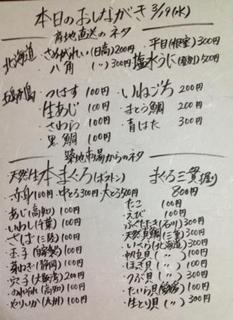 本日のおしながき 3/9(水)
産地直送のネタ
北海道
さめがれい(日高)200円 平目 300円
八角 (〃)300円 塩水うに 500円
つばす 100円 いねごち 200円
生あじ 100円 まとう鯛 200円
さわら 100円 青はた 300円
黒鯛 100円
築地市場からのネタ
天然生本まぐろ まぐろ三貫握り
赤身100円 中とろ300円 大とろ 800円
あじ(高知)100円 たこ 100円
いわし(千葉)100円 えび 100円
さば(三陸)100円 300円
玉子 100円 天然真鯛 300円
(静岡)100円 いくら(北海道)300円
穴子 200円 帆立貝(〃)100円
(高知)100円 ほっき貝(〃)100円
やりいか(九州)100円 つぶ貝(〃)300円
たいら貝 300円
生とり貝(〃)300円